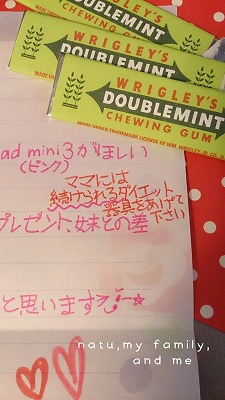 WRIGLEY'S
DOUBLEMINT
CHEWING GUM
WRIGLEY'S
DOUBLEMINT
CHEWING GUM
MADE UNDER TRADEMARK LICENSE OF WM. WRIGLEY JR. CO.
ad mini3がほしい
(ピンク)
ママには
続けられるダイエット、
器具をあげて
下さい
プレゼント、妹との差
と思います
natu,my family,
and me